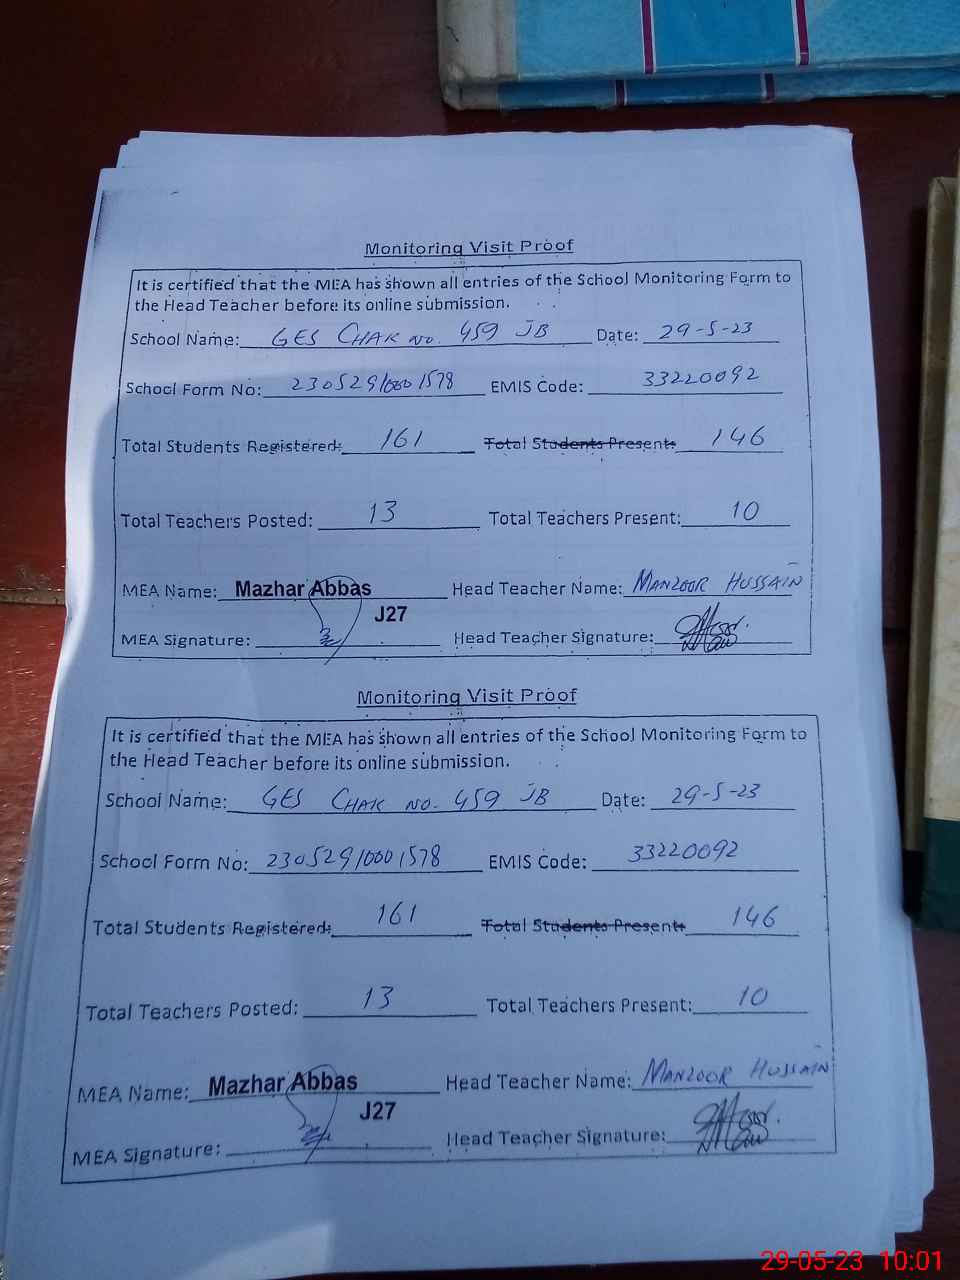 Monitoring Visit Proof
It is certified that the MEA has shown all entries of the School Monitoring Form to
the Head Teacher before its online submission.
School Name: GES CHAK NO. 459 JB Date: 29-5-23
School Form No: 23052910001578 EMIS Code: 33220092
Total Students Registered: 161 Total Students Present: 146
Total Teachers Posted: 13 Total Teachers Present: 10
MEA Name: Mazhar Abbas Head Teacher Name: MANZOOR HUSSAIN
J27
MEA Signature: Head Teacher Signature:
Monitoring Visit Proof
It is certified that the MEA has shown all entries of the School Monitoring Form to
the Head Teacher before its online submission.
School Name: GES CHAK NO. 459 JB Date: 29-5-23
School Form No: 23052910001578 EMIS Code: 33220092
Total Students Registered: 161 Total Students Present: 146
Total Teachers Posted: 13 Total Teachers Present: 10
MEA Name: Mazhar Abbas Head Teacher Name: MANZOOR HUSSAIN
J27
MEA Signature: Head Teacher Signature:
29-05-23 10:01